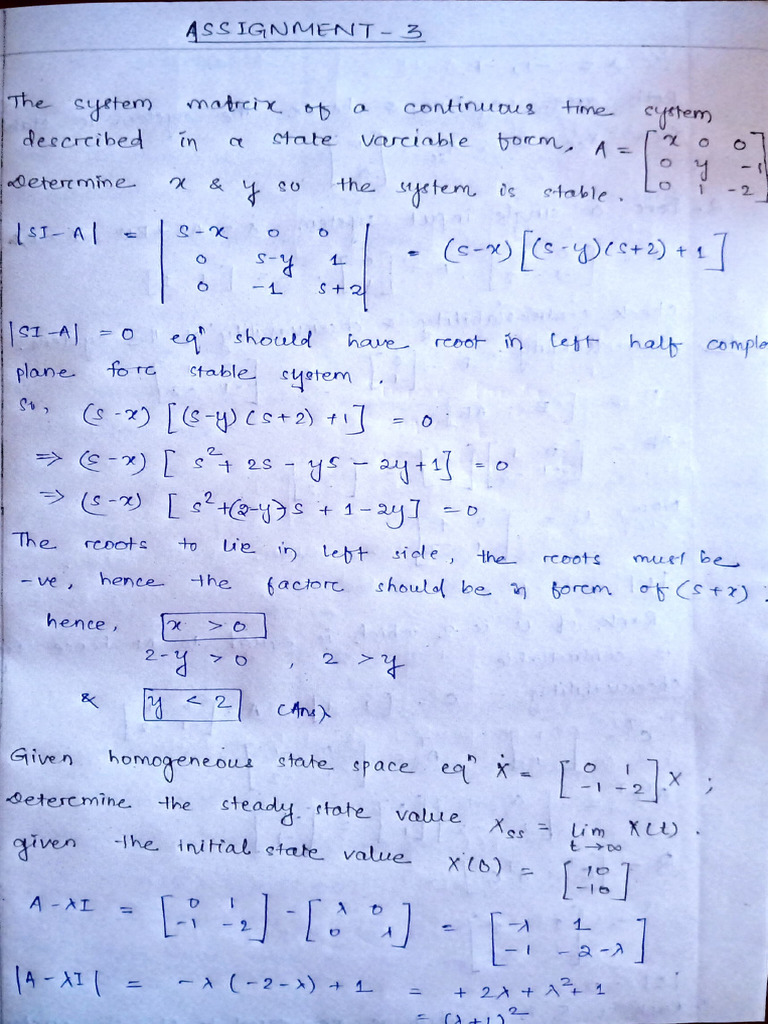 ASSIGNMENT - 3
The system matrcix of a continuous time system
descrcibed in a state varciable forcm, A = [x 0 0
0 y -1
0 1 -2]
Determcine x & y so the system is stable.
|SI - A| = |s-x 0 0
0 s-y 1
0 -1 s+2| = (s-x) [(s-y)(s+2) + 1]
|SI - A| = 0 eqⁿ should have rcoot in left half comple
plane forc stable system.
So, (s-x) [(s-y)(s+2) + 1] = 0
⇒ (s-x) [s² + 2s - ys - 2y + 1] = 0
⇒ (s-x) [s² + (2-y)s + 1 - 2y] = 0
The rcoots to lie in left side, the rcoots must be
-ve, hence the factorc should be in forcm of (s+x).
hence, x > 0
2-y > 0 , 2 > y
& y < 2 (Ans)
Given homogeneous state space eqⁿ Ẋ = [0 1
-1 -2] X ;
Detercmine the steady state value Xss = lim X(t).
t→∞
given the initial state value X(0) = [10
-10]
A - λI = [0 1
-1 -2] - [λ 0
0 λ] = [-λ 1
-1 -2-λ]
|A - λI| = -λ(-2-λ) + 1 = + 2λ + λ² + 1
= (λ+1)²